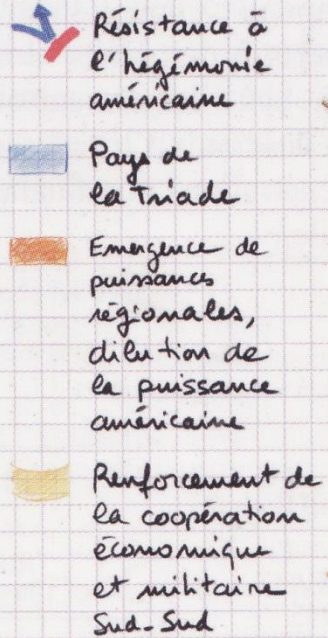 Résistance à
l'hégémonie
américaine
Pays de
la Triade
Emergence de
puissances
régionales,
dilution de
la puissance
américaine
Renforcement de
la coopération
économique
et militaire
Sud-Sud